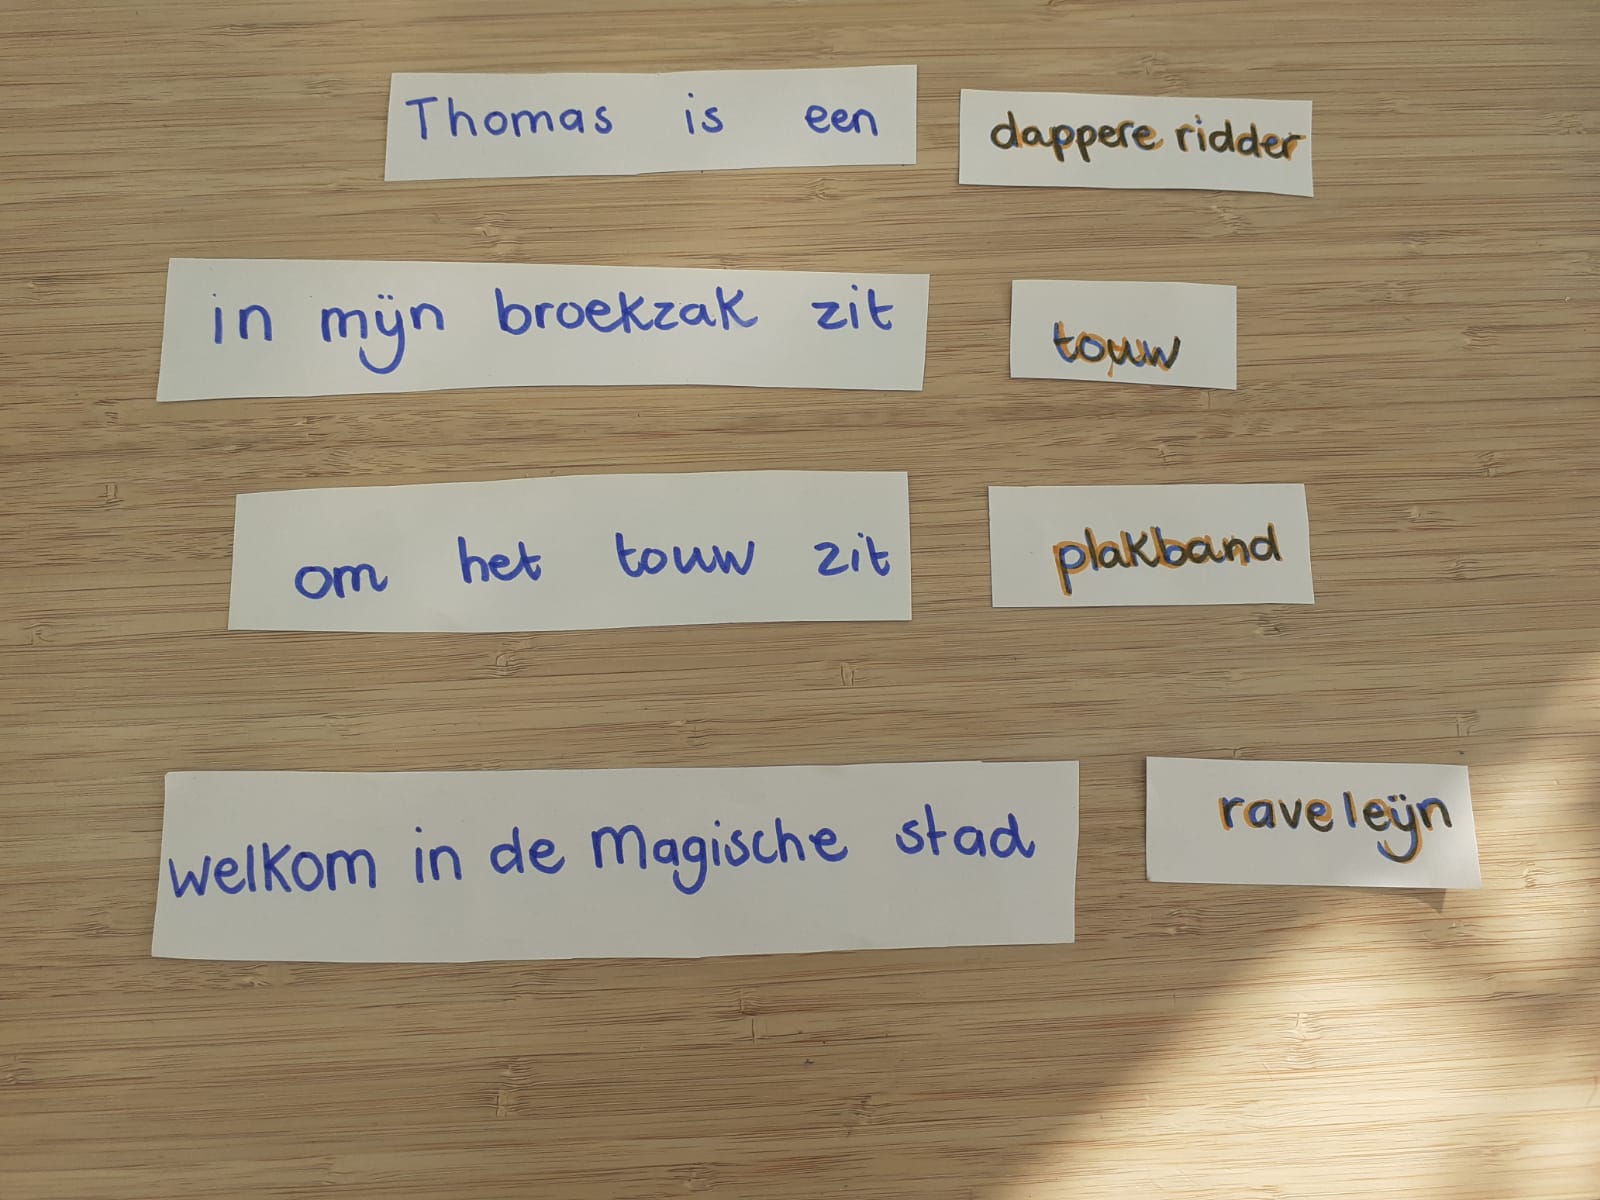 Thomas is een dappere ridder
in mijn broekzak zit touw
om het touw zit plakband
welkom in de magische stad raveleijn